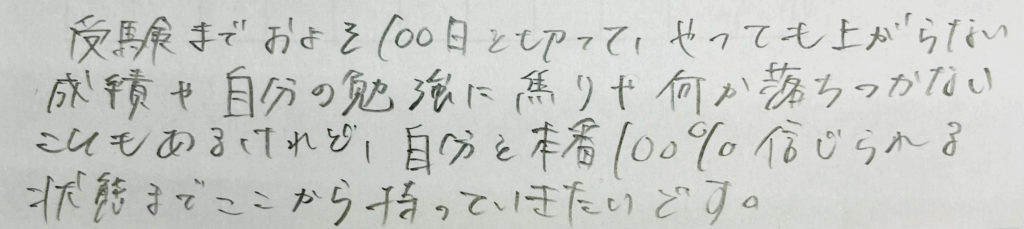 受験までおよそ100日と切って、やっても上がらない
成績や自分の勉強に焦りや何か落ちつかない
こともあるけれど、自分を本番100%信じられる
状態までここから持っていきたいです。